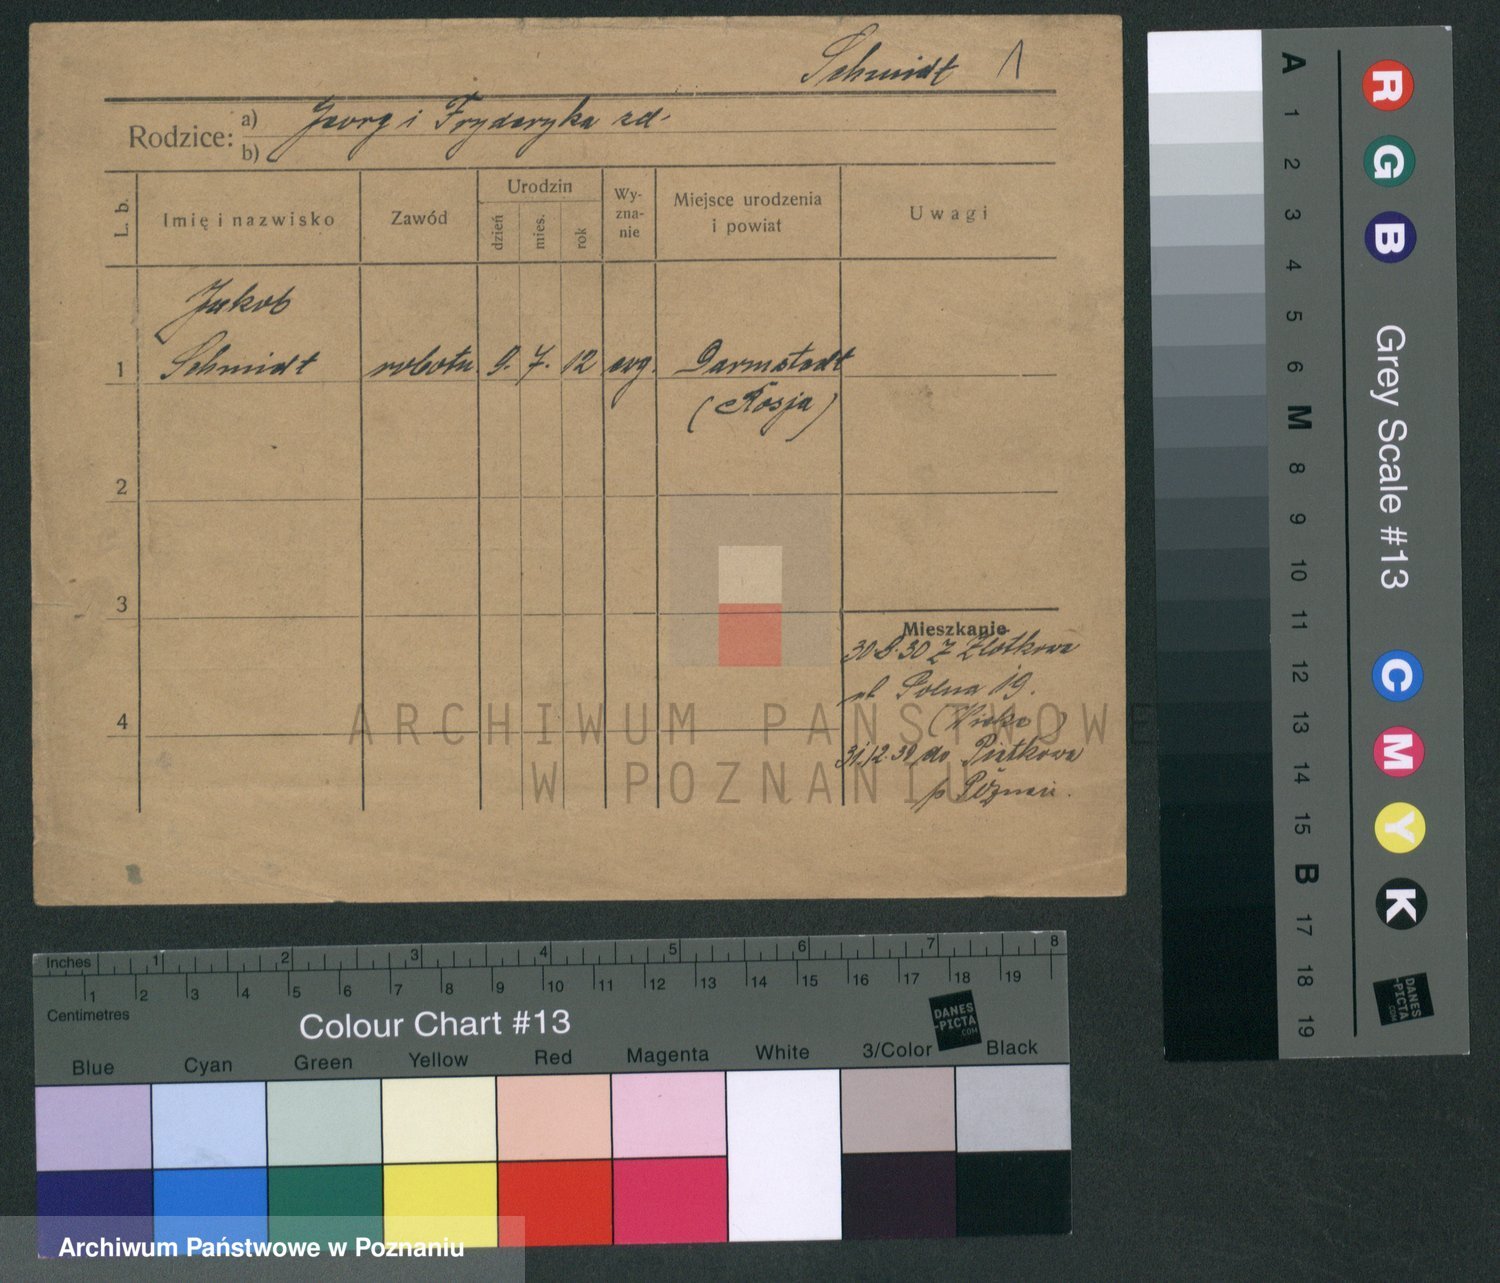 Schmidt 1
Rodzice: a) Georg i Fryderyka zd.
b)
L. b. Imię i nazwisko Zawód Urodzin dzień mies. rok Wy-zna-nie Miejsce urodzenia i powiat Uwagi
Jakob
1 Schmidt robotn. 9. 7. 12 ewg. Darmstadt
(Rosja)
2
3
Mieszkanie
30 8.30 z Złotkowa
ul. Polna 19.
4
31.12.30 do Piątkowa
p Poznań.
ARCHIWUM PAŃSTWOWE
W POZNANIU
A 1 2 3 4 5 6 M 8 9 10 11 12 13 14 15 B 17 18 19
R G B Grey Scale #13 C M Y K
DANES-PICTA.COM
Inches 1 2 3 4 5 6 7 8
1 2 3 4 5 6 7 8 9 10 11 12 13 14 15 16 17 18 19
Centimetres
Colour Chart #13
DANES-PICTA.COM
Blue Cyan Green Yellow Red Magenta White 3/Color Black
Archiwum Państwowe w Poznaniu